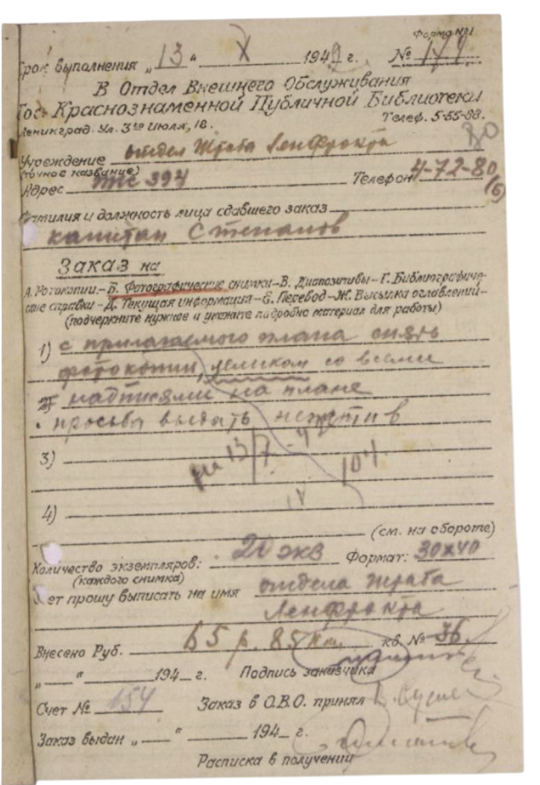 Форма №1
Срок выполнения „13“ X 1942 г. № 174
В Отдел Внешнего Обслуживания
Гос. Краснознаменной Публичной Библиотеки
Ленинград. Ул. 3го Июля, 18. Телеф. 5-55-88.
Учреждение отдел Штаба Ленфронта
(точное название)
Адрес ппс 394 Телефон 4-72-80
(б)
Фамилия и должность лица сдавшего заказ
капитан Степанов
Заказ на
А. Фотокопии.–Б. Фотографические снимки–В. Диапозитивы–Г. Библиографиче-
ские справки–Д. Текущая информация–Е. Перевод–Ж. Высылка оглавлений–
(подчеркните нужное и укажите подробно материал для работы)
1) с прилагаемого плана снять
фотокопии целиком со всеми
2) надписями на плане
просьба выдать негатив
на 13/X
3)
4)
(см. на обороте)
Количество экземпляров: 20 экз Формат: 30х40
(каждого снимка)
Счет прошу выписать на имя отдела штаба
Ленфронта
Внесено Руб. 65 р. 85 коп. кв. № 36
„ “ 194 г. Подпись заказчика
Счет № 154 Заказ в О.В.О. принял
Заказ выдан „ “ 194 г.
Расписка в получении